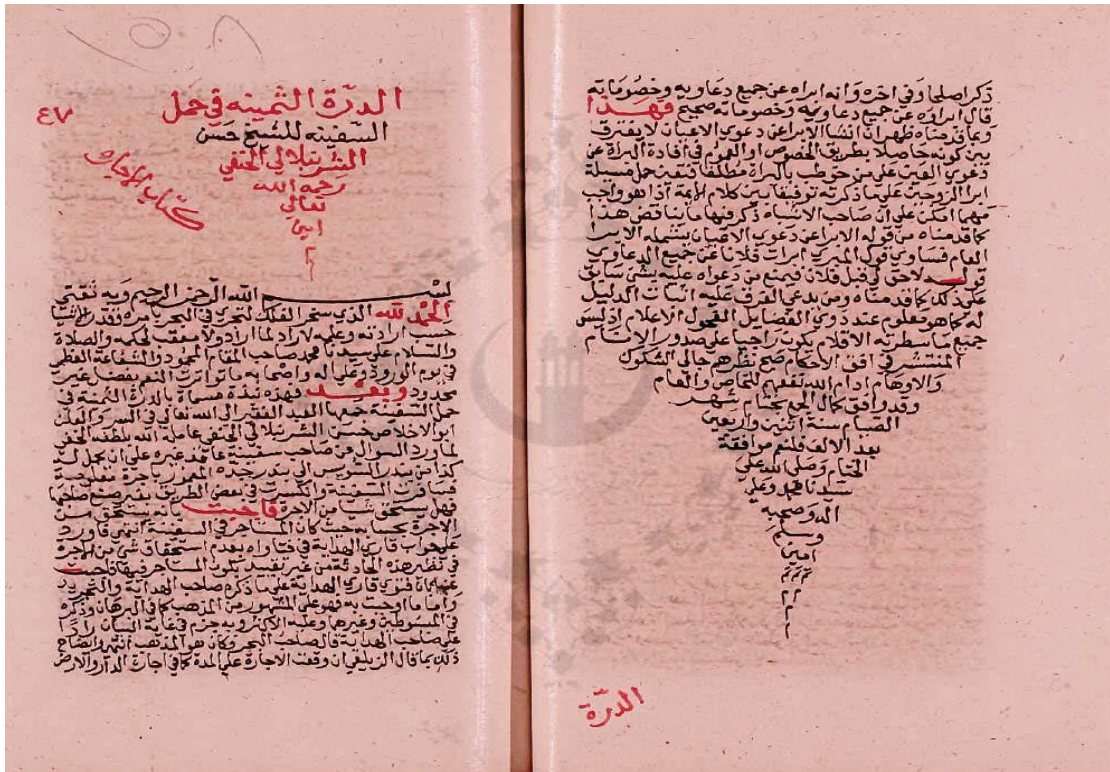 ذكر اصلحا وفي اخره وانه ابراه عن جميع دعاويه وخصوماته
قال ابراؤه عن جميع دعاويه وخصوماته صحيح فهذا
وبما قدمناه ظهر ان انشا الابرا عن دعوي الاعيان لا يفترق
بين كونه حاصلا بطريق الخصوص او العموم في افادة البراة عن
دعوي العين علي من خوطب بالبراة مطلقا فتعين حمل مسيلة
ابرا الزوجين علي ما ذكرته توفيقا بين كلام الايمة اذ هو واجب
مهما امكن علي ان صاحب الاشباه ذكر فيها ما يناقض هذا
كما قدمناه من قوله الابرا عن دعوي الاعيان يشمله الابرا
العام فساوي قول المبري ابرات فلانا عن جميع الدعاوي
قوله لا حق لي قبل فلان فيمنع من دعواه عليه بشي سابق
علي ذلك كما قدمناه ومن يدعي الفرق عليه اثبات الدليل
له كما هو معلوم عند ذوي الفضايل الفحول الاعلام اذ ليس
جميع ما سطرته الاقلام يكون راجيا علي صدور الانام
المنتشر في افق الاحكام صح نظرهم جالي الشكوك
والاوهام ادام الله نفعهم للخاص والعام
وقد وافق كمال الجمع بختام شهر
الصيام سنة اثنين واربعين
بعد الالف فلنعم موافقة
الختام وصلي الله علي
سيدنا محمد وعلي
اله وصحبه
وسلم
امين
م م م
الدرة
١٥٠٨
٤٧
الدرة الثمينه في حمل
السفينه للشيخ حسن
الشرنبلالي الحنفي
رحمه الله
تعالي
امين
كتاب الاجاره
بسم الله الرحمن الرحيم وبه ثقتي
الحمد لله الذي سخر الفلك لتجري في البحر بامره بقدر الاشيا
حسب ارادته وعلمه لا راد لما اراد ولا معقب لحكمه والصلاة
والسلام علي سيدنا محمد صاحب المقام المحمود والشفاعة العظمي
في يوم الورود وعلي اله واصحابه ما تواترت النعم بفضل غير
محدود وبعد فهذه نبذة مسماة بالدرة الثمينة في
حمل السفينة جمعها العبد الفقير الي الله تعالي في السر والعلن
ابو الاخلاص حسن الشرنبلالي الحنفي عامله الله بلطفه الخفي
لما ورد السوال عن صاحب سفينة عاقد غيره علي ان يحمل له
كذا من بندر السويس الي بندر جده المعمور باجرة معلومة
فسافرت السفينة وانكسرت في بعض الطريق بغير صنع صاحبها
فهل يستحق شيا من الاجرة فاجبت بانه يستحق من
الاجرة بحسابه حيث كان المستاجر في السفينة انتهي فاورد
علي جواب قاري الهداية في فتاواه بعدم استحقاق شي من الاجرة
في نظير هذه الحادثة من غير تقييد بكون المستاجر فيها فاجبت
عنه بان فتوي قاري الهداية علي ما ذكره صاحب الهداية والتجريد
واما ما اجبت به فهو علي المشهور من المذهب كما في البرهان وذكره
في المبسوط وغيرها وعليه الاكثر وبه جزم في غاية البيان رادا
علي صاحب الهداية قال صاحب البحر فكان هو المذهب انتهي وايضاح
ذلك بما قال الزيلعي ان وقعت الاجارة علي المدة كما في اجارة الدار والارض